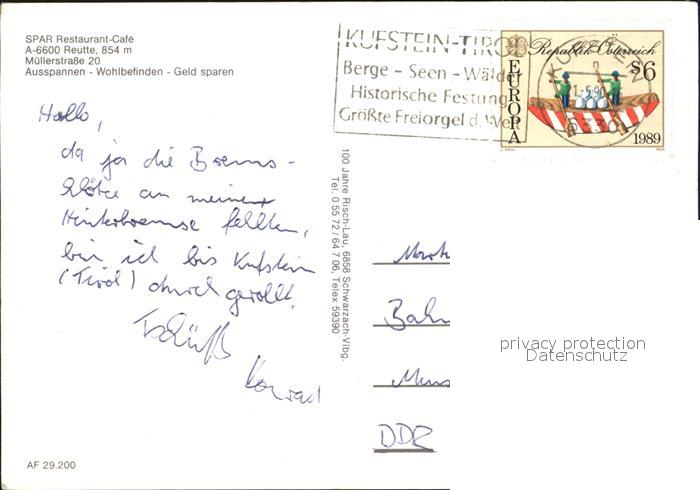 SPAR Restaurant-Café
A-6600 Reutte, 854 m
Müllerstraße 20
Ausspannen - Wohlbefinden - Geld sparen
KUFSTEIN-TIROL
Berge - Seen - Wälder
Historische Festung
Größte Freiorgel d. Welt
Republik Österreich
S6
EUROPA
1989
6330
Hallo,
da ja die Brems-
klötze an meiner
Hinterbremse fehlten,
bin ich bis Kufstein
(Tirol) durch gerollt.
Tschüß
Konrad
100 Jahre Risch-Lau, 6858 Schwarzach-Vlbg.
Tel. 0 55 72 / 64 7 06, Telex 59390
Bahn
DDR
privacy protection
Datenschutz
AF 29.200